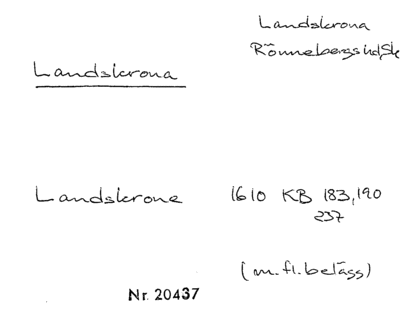 Landskrona
Rönnebergs hd, Sk
Landskrona
Landskrone 1610 KB 183, 190
237
(m.fl. belägg)
Nr. 20437